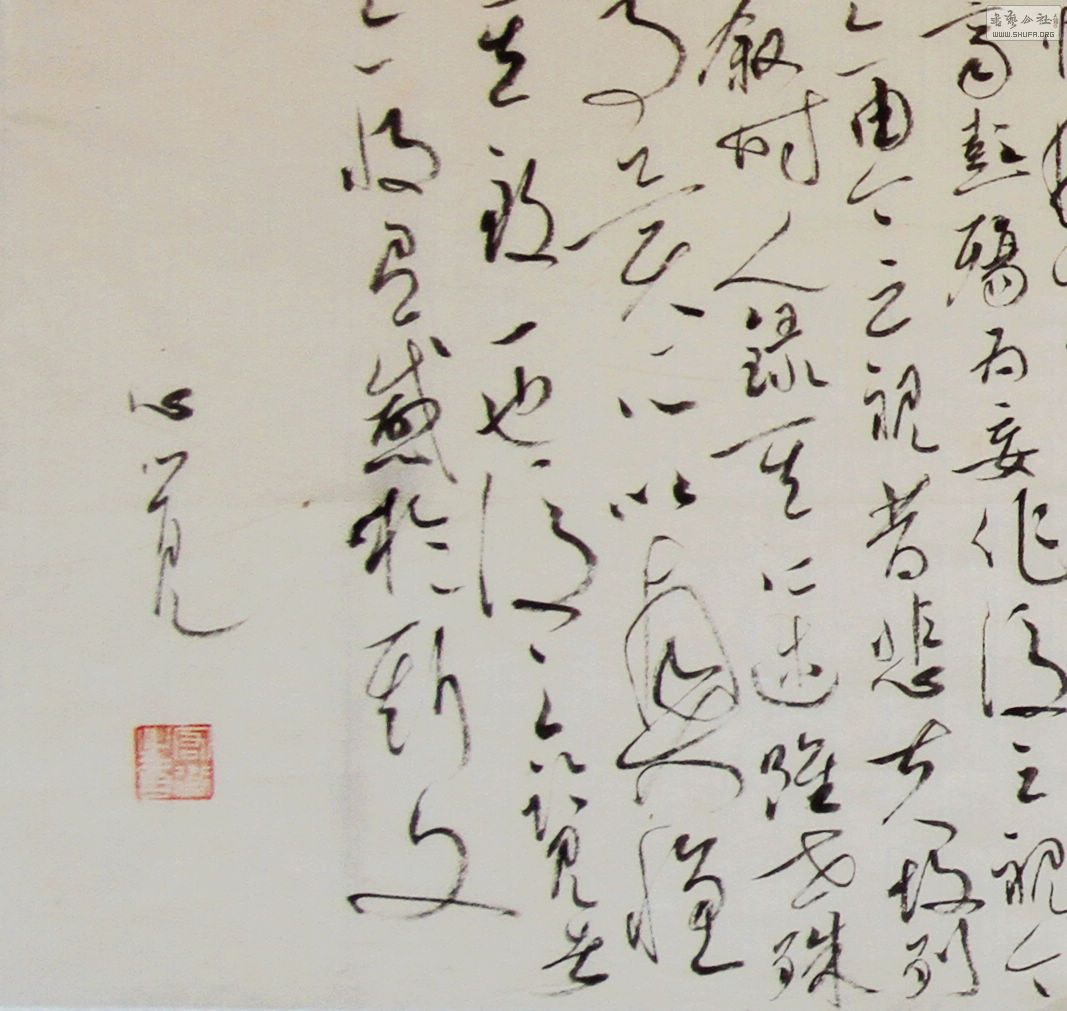 齊彭殤為妄作後之視今
亦由今之視昔悲夫故列
叙時人錄其所述雖世殊
事異所以興懷
其致一也後之覽者
亦將有感於斯文
心
書藝公社
WWW.SHUFA.ORG